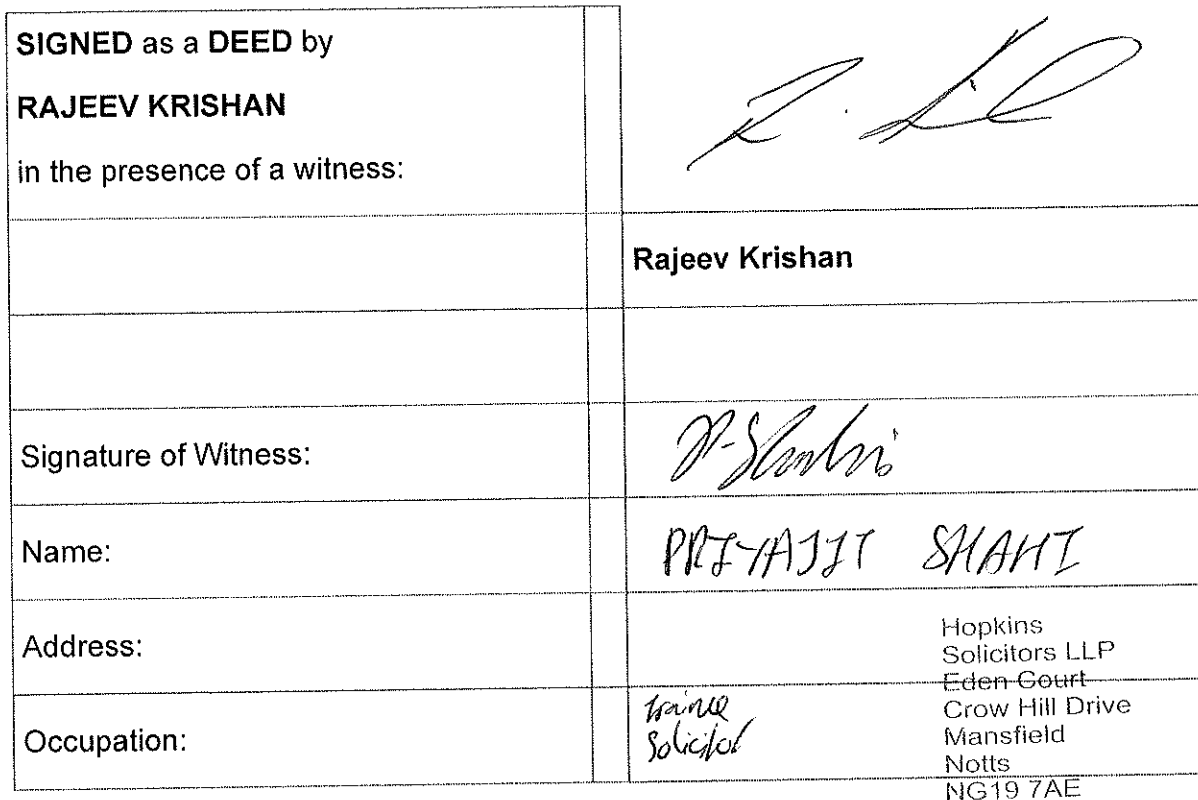 SIGNED as a DEED by
RAJEEV KRISHAN
in the presence of a witness:
Rajeev Krishan
Signature of Witness:
P. Shahi
Name:
PRIYAJIT SHAHI
Address:
Hopkins
Solicitors LLP
Eden Court
Crow Hill Drive
Mansfield
Notts
NG19 7AE
Occupation:
trainee
Solicitor